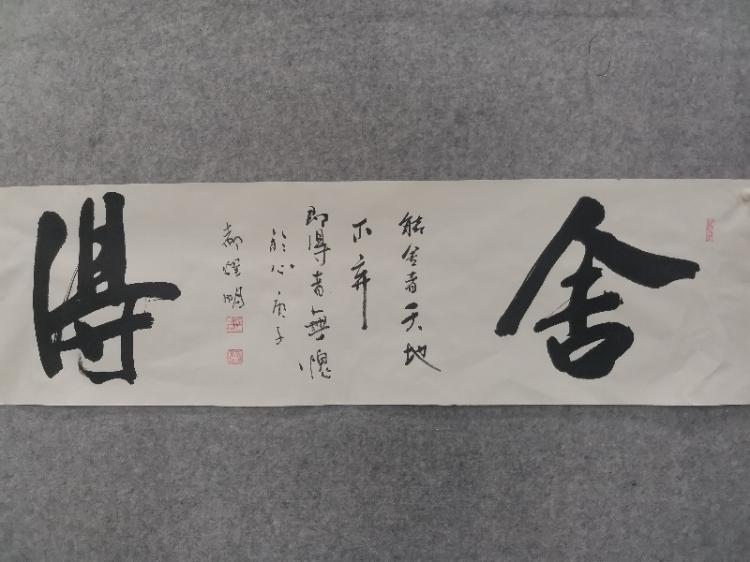 舍
能舍者天地
不弃
即得者無愧
於心 庚子
郝耀鵬
得